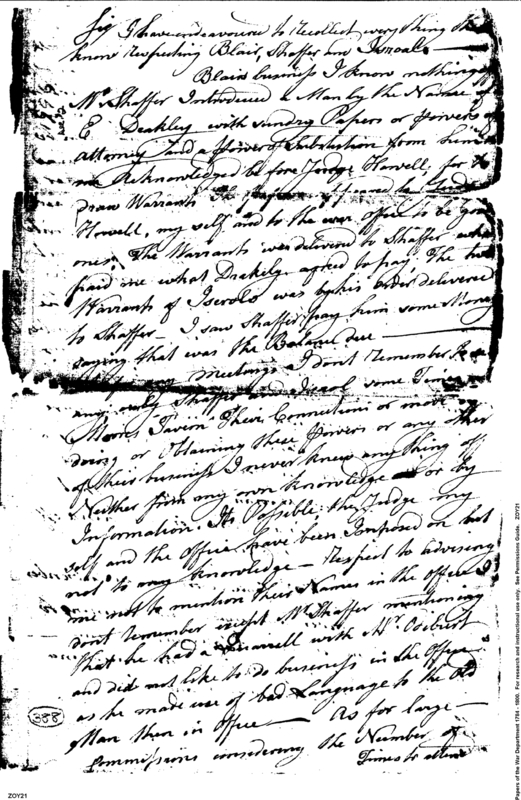 Sir I have endeavoured to Recollect every thing
know respecting Blair, Shaffer and Iseroal
Blairs business I know nothing
Mr Shaffer Introduced a Man by the Name of
E. Deakley with sundry Papers or Powers of
attorney and a Power of Substitution from
Acknowledged before Judge Howell, for
Draw Warrants appeared to
Howell, my self and to the office to be good
ones. The Warrants was delivered to Shaffer who
paid me what Drakely agreed to pay, The two
Warrants of Iserolo was by his order delivered
to Shaffer. I saw Shaffer pay him some Money
saying that was the Balance due
meetings I dont remember
any only Shaffer and Iserol some Times
Morris Tavern Their Connections or mode of
doing or Obtaining these Powers or any other
of their business I never knew any thing of
Neither from my own knowledge or by
Information. Its Possible the Judge my
self and the Office have been Imposed on but
not to my knowledge — Respect to advising
me not to mention their Names in the office I
dont remember except Mr Shaffer mentioning
that he had a with Mr
and did not like to do business in the Office
as he made use of bad Language to the Old
Man then in office — As for large
Commissions considering the Number of
Times to attend
388
ZOY21
Papers of the War Department 1784 - 1800. For research and instructional use only. See Permissions Guide. ZOY21